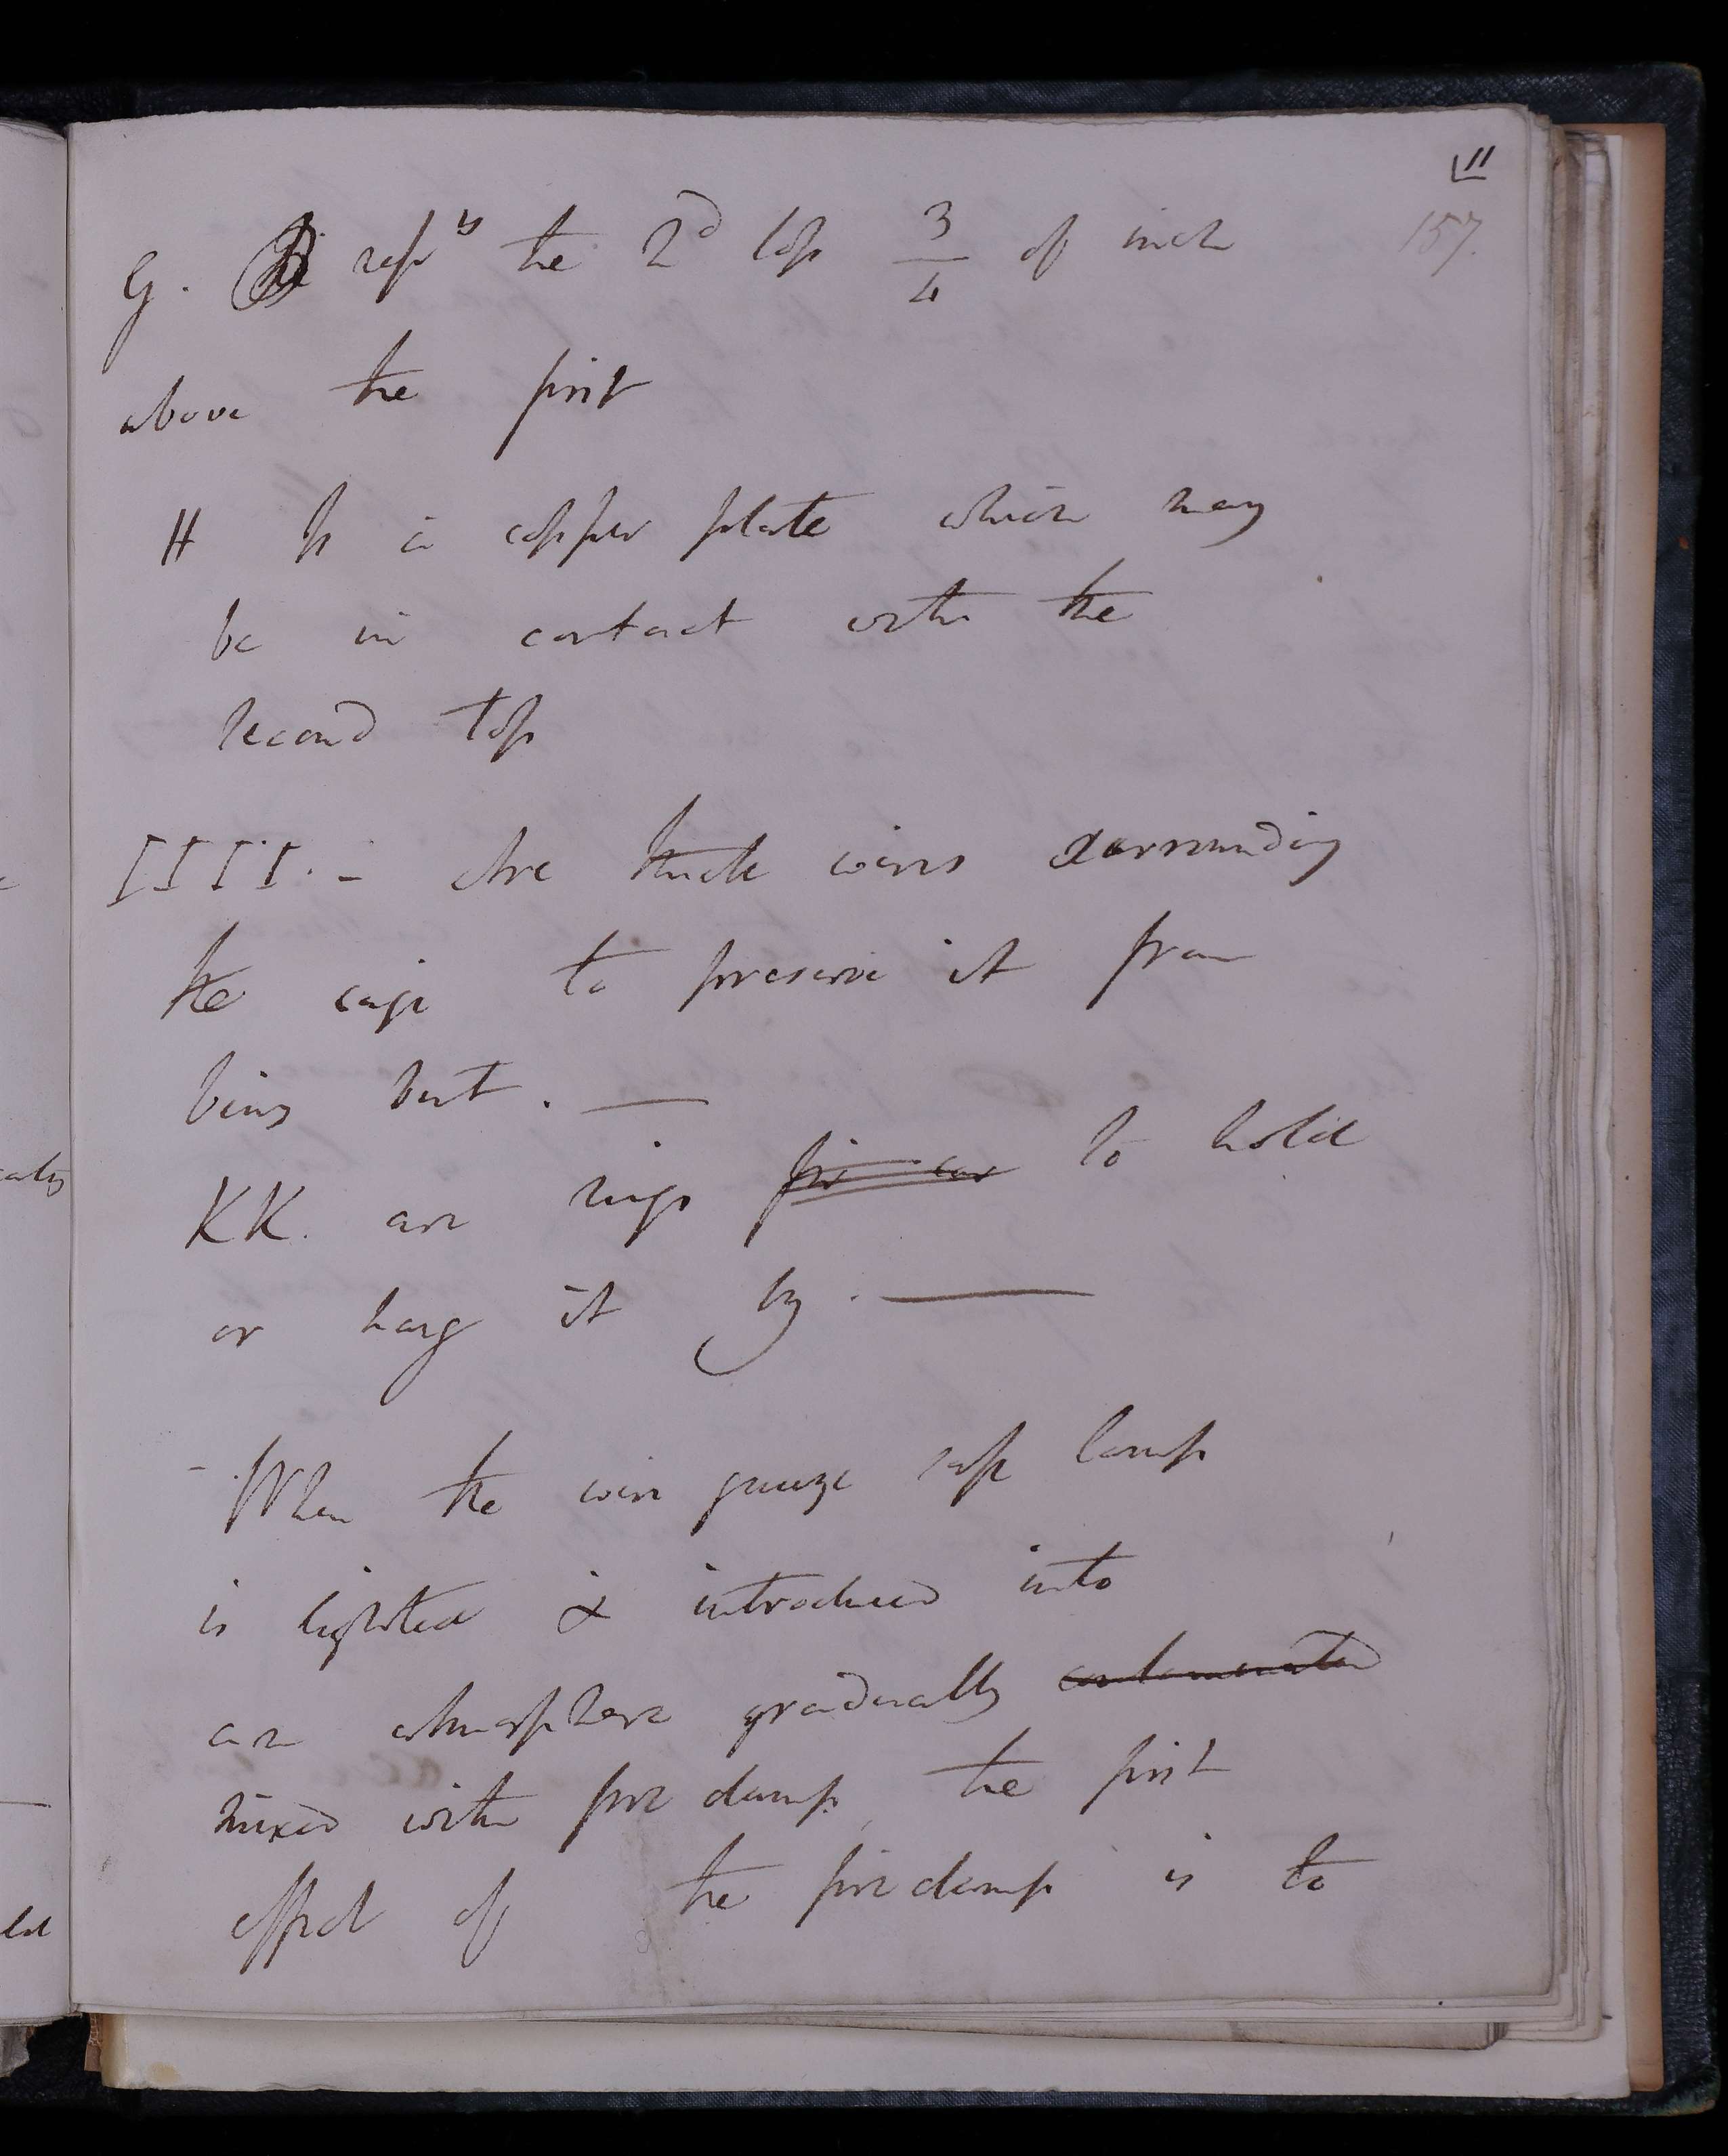 11
157.
G. rep.ts the 2d top 3/4 of inch
above the first
H is a copper plate which may
be in contact with the
second top
IIII. - Are thick wires surrounding
the cage to preserve it from
being bent. —
KK. are rings for to hold
or hang it by. —
- When the wire gauze safe lamp
is lighted & introduced into
an atmosphere gradually contaminated
mixed with fire damp, the first
effect of the fire damp is to